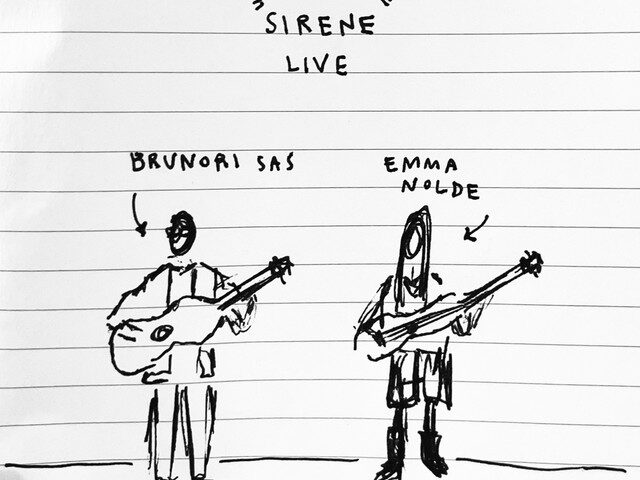 SIRENE
LIVE
BRUNORI SAS
EMMA
NOLDE